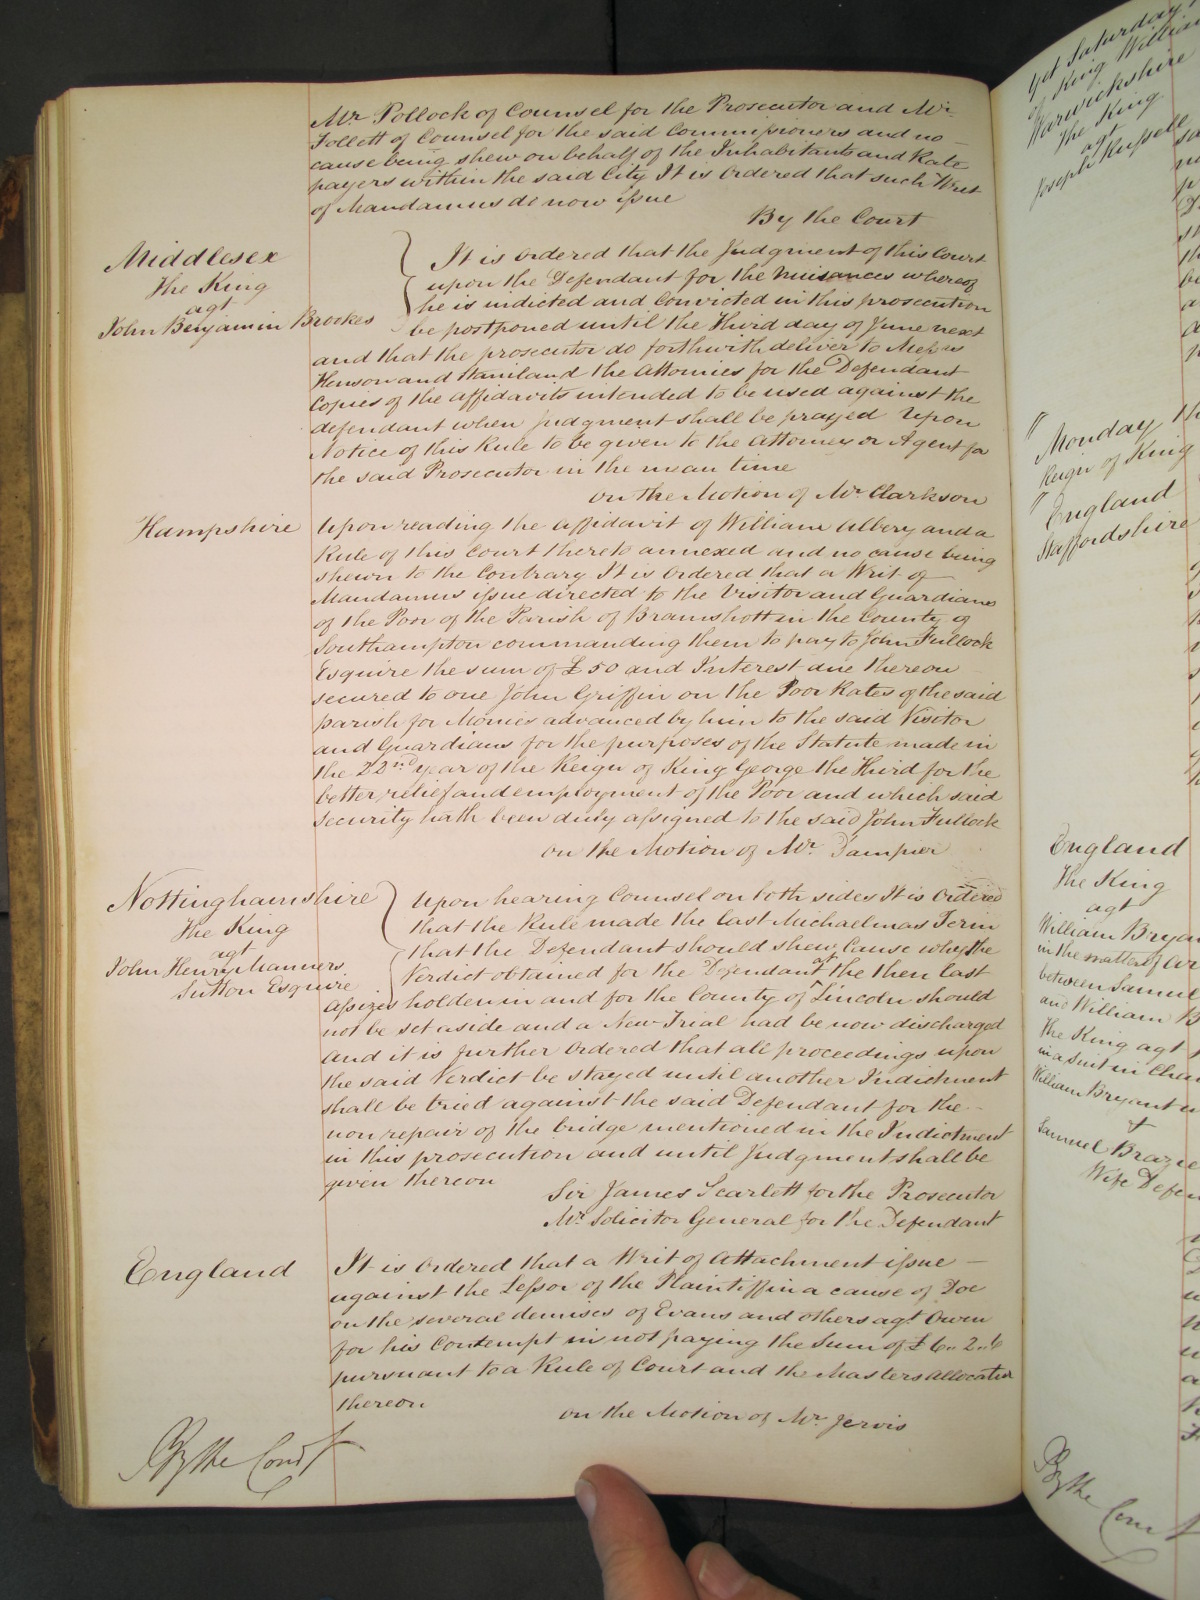 Mr. Pollock of Counsel for the Prosecutor and Mr.
Follett of Counsel for the said Commissioners and no
cause being shew on behalf of the Inhabitants and Rate
payers within the said City It is Ordered that such Writ
of Mandamus do now issue
By the Court
Middlesex
The King
agt
John Benjamin Brookes
It is ordered that the Judgment of this Court
upon the Defendant for the Nuisances whereof
he is indicted and Convicted in this prosecution
be postponed until the Third day of June next
and that the prosecutor do forthwith deliver to Messrs
Henson and Staniland the Attornies for the Defendant
Copies of the affidavits intended to be used against the
defendant when Judgment shall be prayed Upon
Notice of this Rule to be given to the Attorney or Agent for
the said Prosecutor in the mean time
on the Motion of Mr. Clarkson
Hampshire
Upon reading the affidavit of William Albery and a
Rule of this Court thereto annexed and no cause being
shewn to the Contrary It is Ordered that a Writ of
Mandamus issue directed to the Visitor and Guardians
of the Poor of the Parish of Bramshott in the County of
Southampton commanding them to pay to John Fullock
Esquire the sum of £50 and Interest due thereon
secured to one John Griffin on the Poor Rates of the said
parish for Monies advanced by him to the said Visitor
and Guardians for the purposes of the Statute made in
the 22nd year of the Reign of King George the Third for the
better relief and employment of the Poor and which said
security hath been duly assigned to the said John Fullock
on the Motion of Mr. Dampier
Nottinghamshire
The King
agt
John Henry Manners
Sutton Esquire
Upon hearing Counsel on both sides It is Ordered
that the Rule made the last Michaelmas Term
that the Defendant should shew Cause why the
Verdict obtained for the Defendant at the then last
assizes holden in and for the County of Lincoln should
not be set aside and a New Trial had be now discharged
And it is further Ordered that all proceedings upon
the said Verdict be stayed until another Indictment
shall be tried against the said Defendant for the
non repair of the bridge mentioned in the Indictment
in this prosecution and until Judgment shall be
given thereon
Sir James Scarlett for the Prosecutor
Mr. Solicitor General for the Defendant
England
It is Ordered that a Writ of Attachment issue
against the Lessor of the Plaintiff in a cause of Doe
on the several demises of Evans and others agt Owen
for his Contempt in not paying the Sum of £6.. 2..6
pursuant to a Rule of Court and the Masters Allocatur
thereon
on the Motion of Mr. Jervis
By the Court
Yet Saturday
of King William
Warwickshire
The King
agt
Joseph Russell
Monday
Reign of King
England
Staffordshire
England
The King
agt
William
in the matter of
between Samuel
and William
The King agt
in a Suit in
William Bryant
Samuel
Wife
By the Court